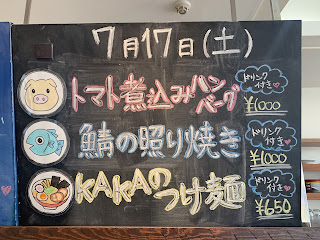 7月17日(土)
トマト煮込みハンバーグ
ドリンク付き♡
¥1000
鯖の照り焼き
ドリンク付き♡
¥1000
KAKAのつけ麺
ドリンク付き♡
¥650